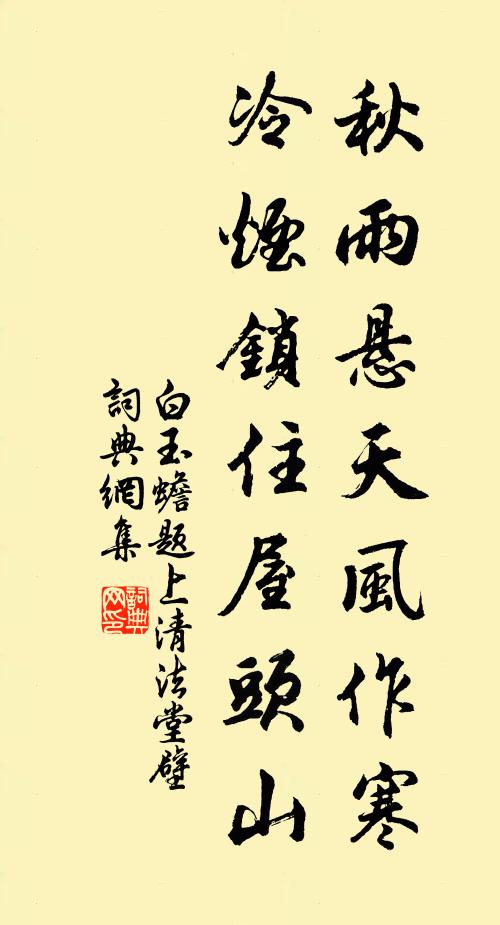 秋雨悬天風作寒
冷煙鎖住屋頭山
白玉蟾題上清法堂壁
詞典網集
詞典网印